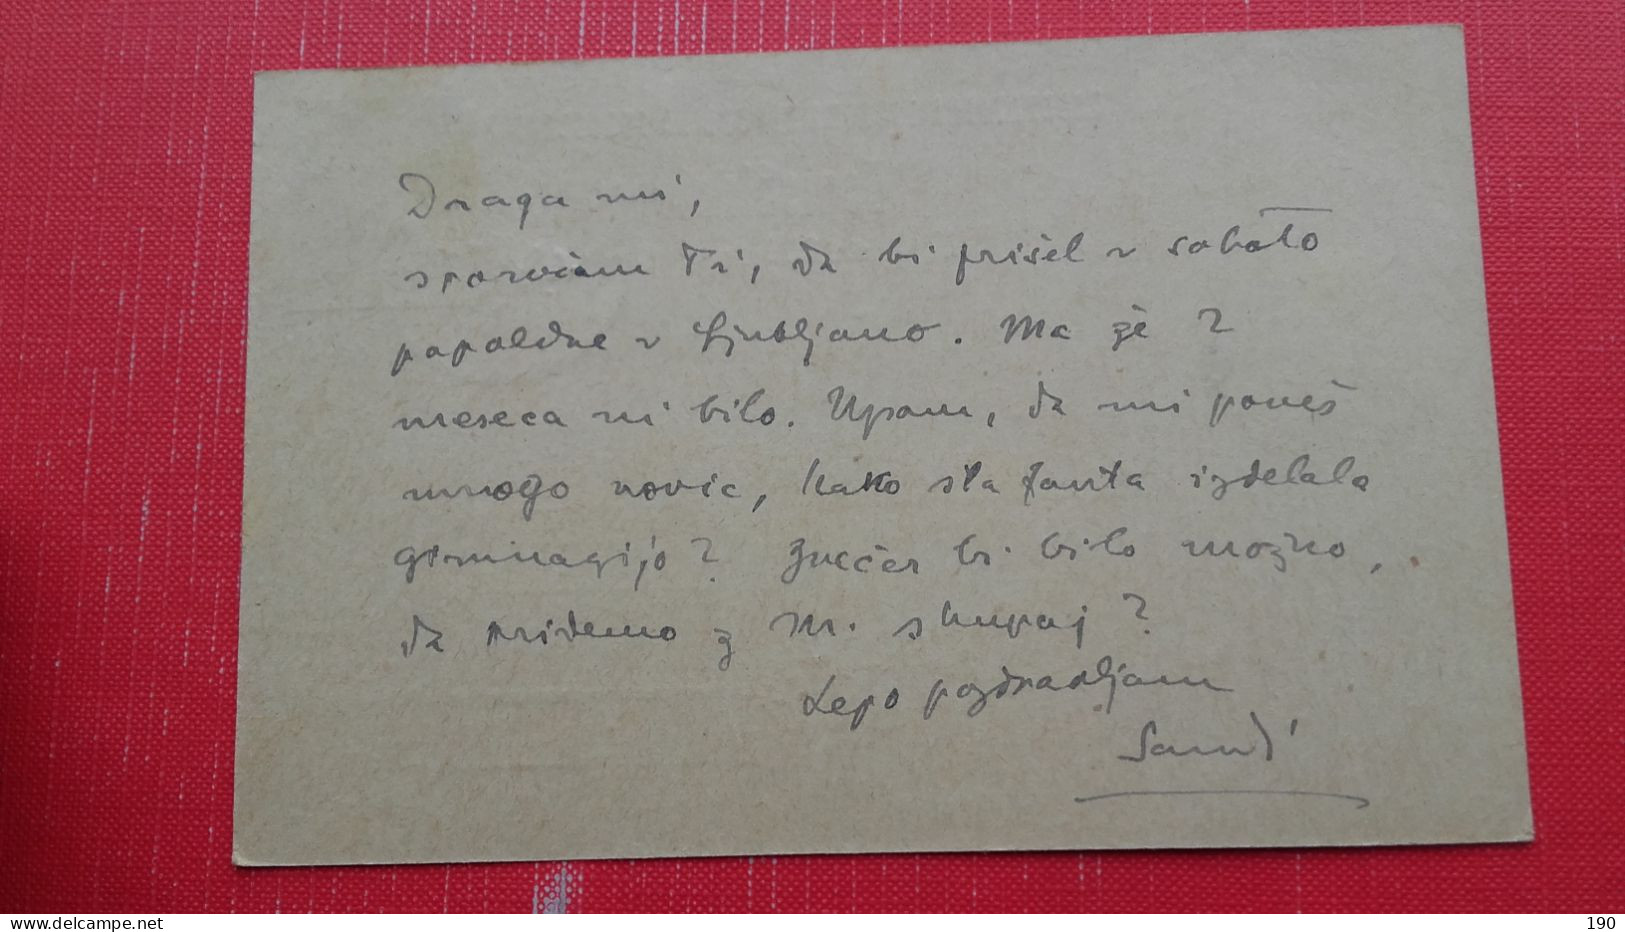 Draga mi,
sporočam Ti, da bi prišel v soboto
popoldne v Ljubljano. Me že 2
meseca ni bilo. Upam, da mi poveš
mnogo novic, kako sta fanta izdelala
gimnazijo? Zvečer bi bilo možno,
da pridemo z M. skupaj?
Lepo pozdravljam
Sandi
190
www.delcampe.net